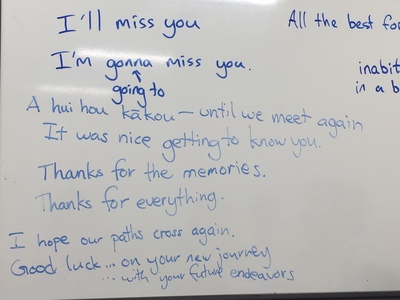 I'll miss you
I'm gonna miss you.
going to
A hui hou kākou — until we meet again
It was nice getting to know you.
Thanks for the memories.
Thanks for everything.
I hope our paths cross again.
Good luck... on your new journey
... with your future endeavors
All the best for
in a b